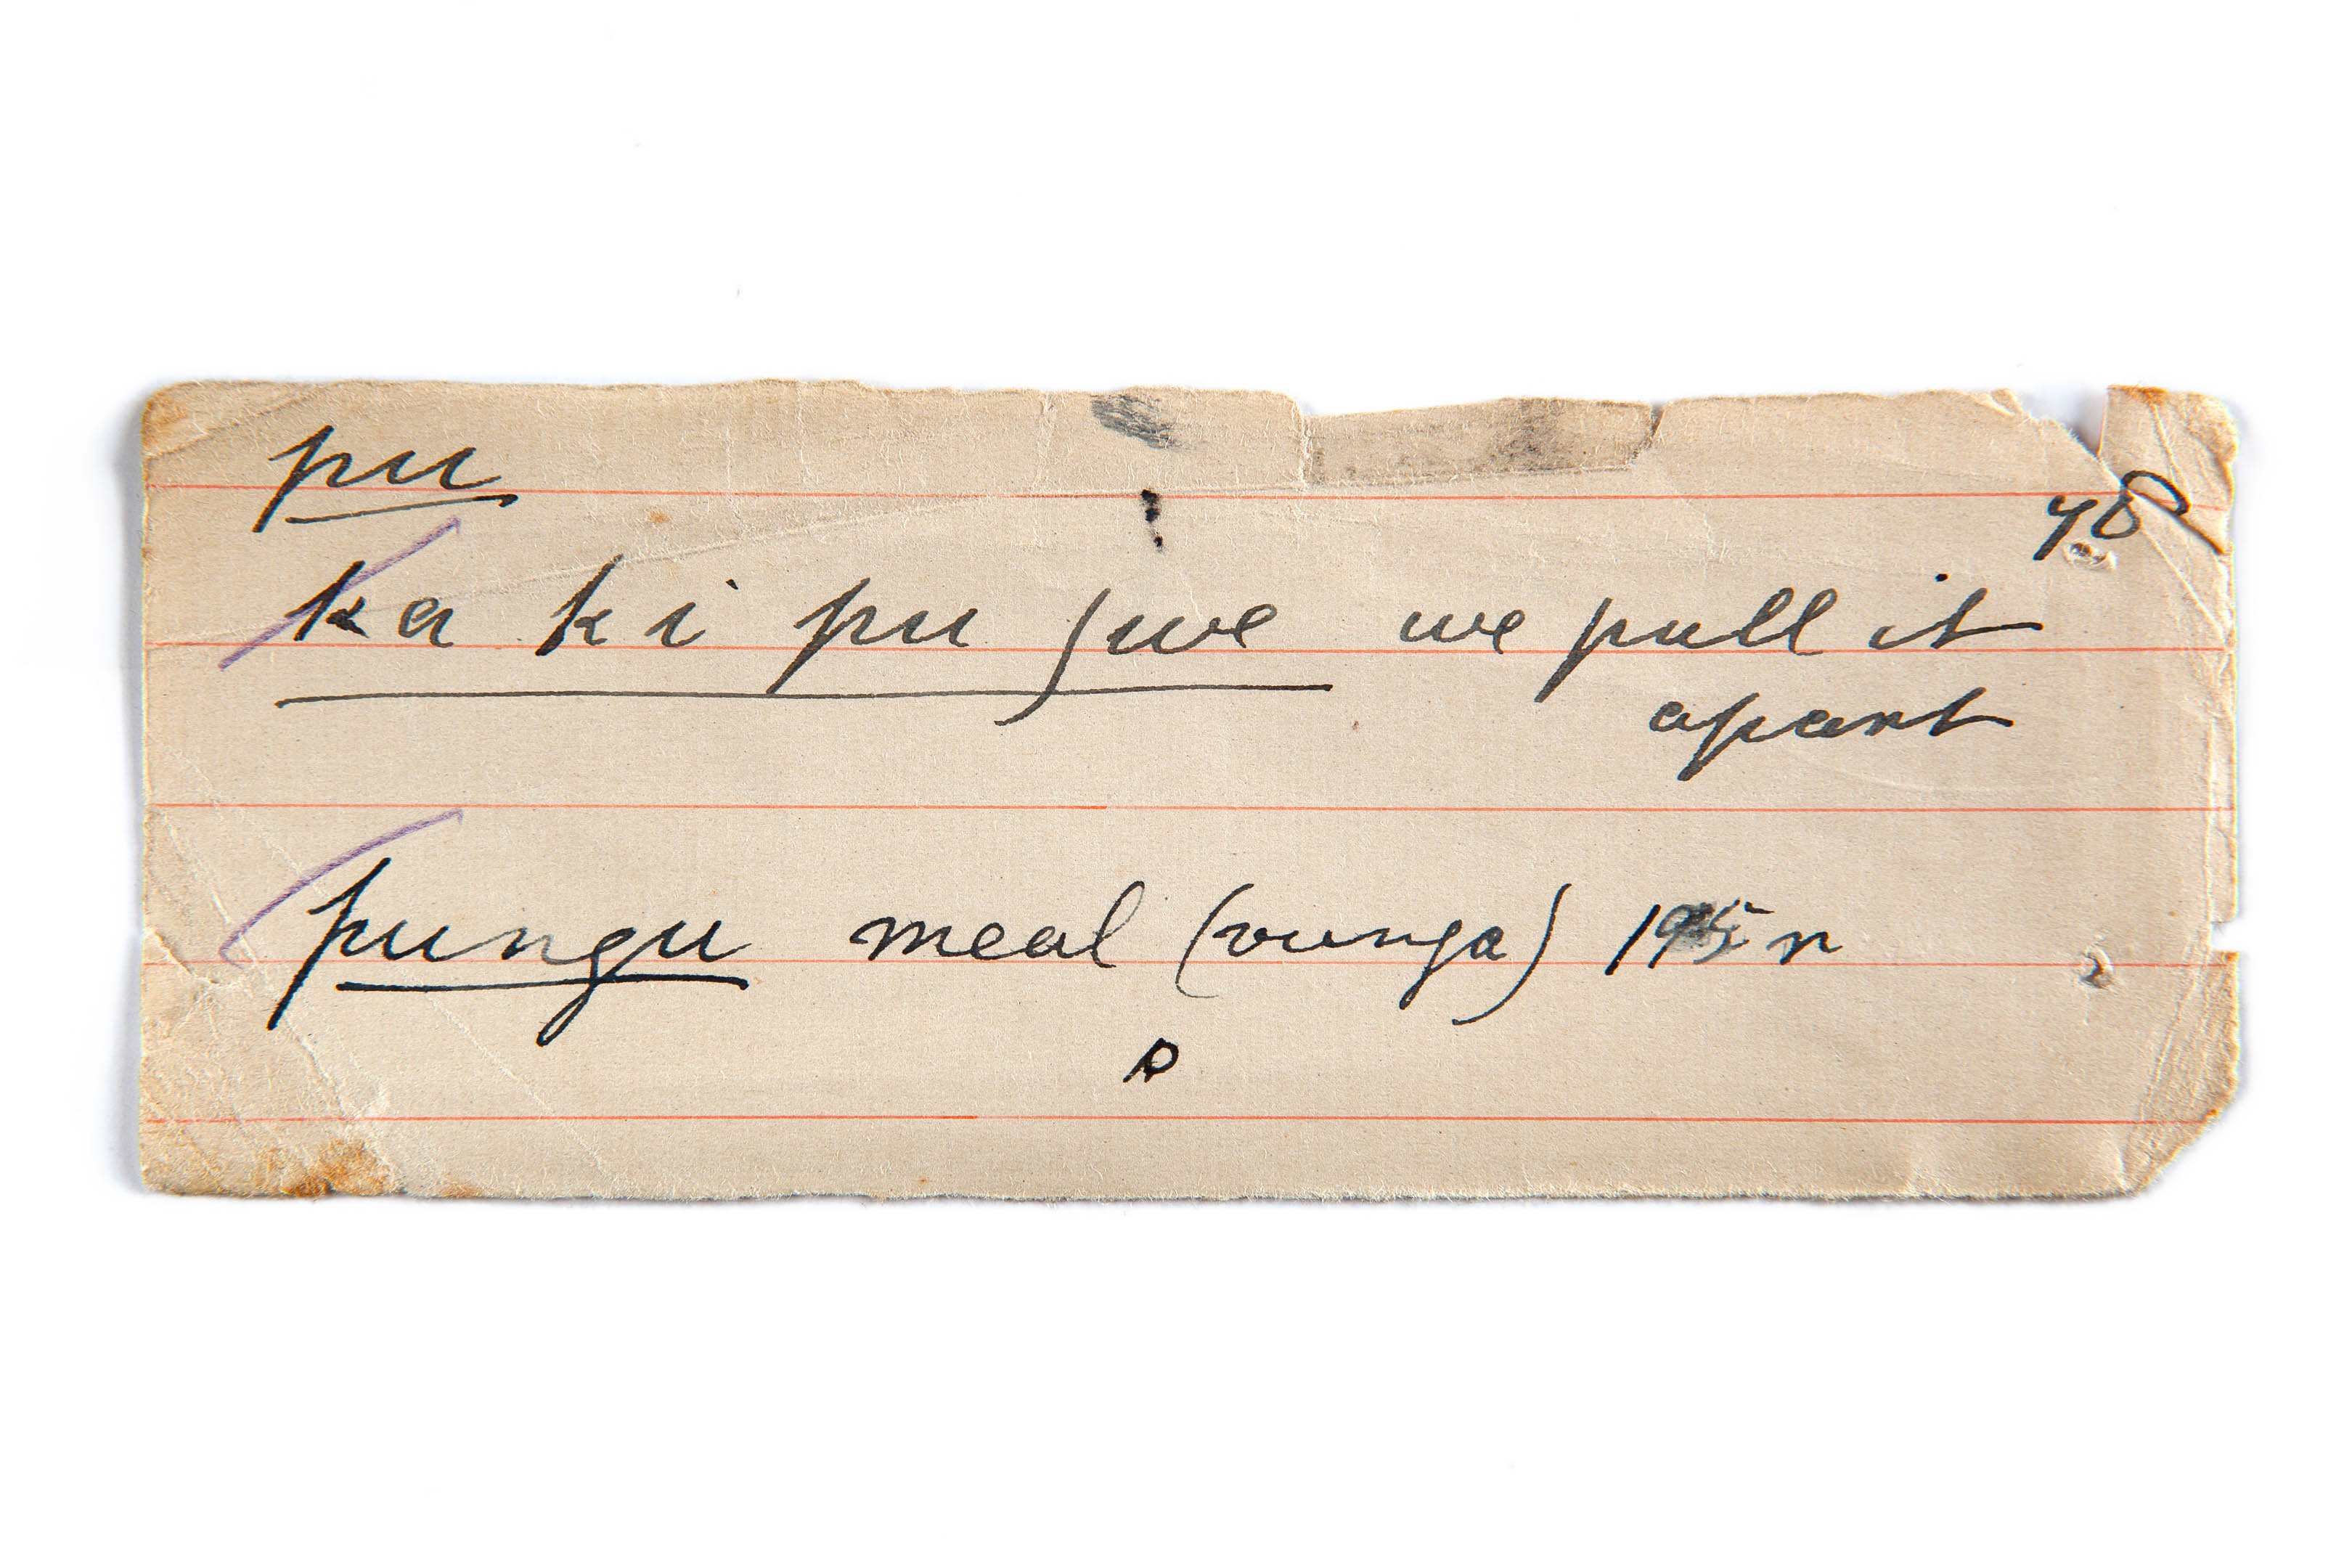 pu
48
ka ki pu ʃwe we pull it
apart
pungu meal (vunga) 195 n